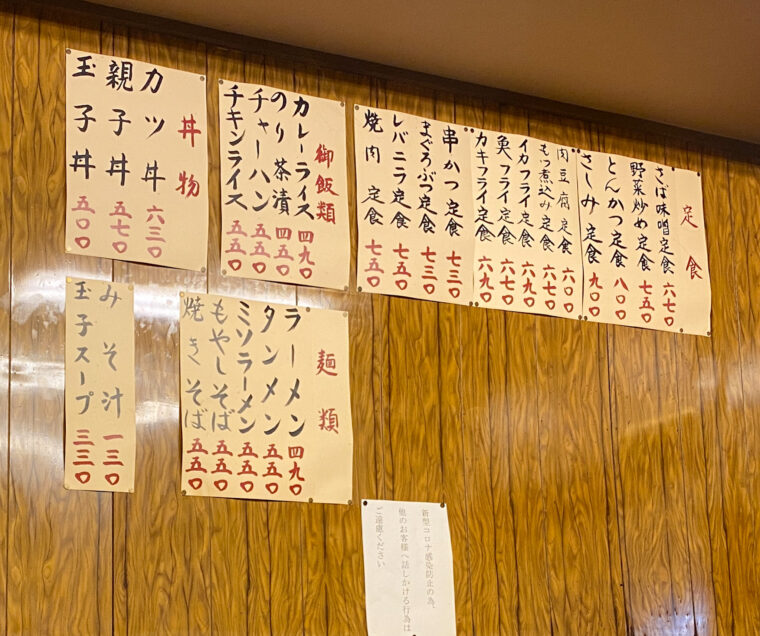 定食
さば味噌定食 六七〇
野菜炒め定食 七五〇
とんかつ定食 八〇〇
さしみ定食 九〇〇
肉豆腐定食 六〇〇
もつ煮込み定食 六七〇
イカフライ定食 六九〇
魚フライ定食 六七〇
カキフライ定食 六九〇
串かつ定食 七三〇
まぐろぶつ定食 七三〇
レバニラ定食 七五〇
焼肉定食 七五〇
御飯類
カレーライス 四九〇
のり茶漬 四五〇
チャーハン 五五〇
チキンライス 五五〇
丼物
カツ丼 六三〇
親子丼 五七〇
玉子丼 五〇〇
麺類
ラーメン 四九〇
タンメン 五五〇
ミソラーメン 五五〇
もやしそば 五五〇
焼きそば 五五〇
みそ汁 一三〇
玉子スープ 三三〇
新型コロナ感染防止の為、
他のお客様へ話しかける行為は
ご遠慮ください